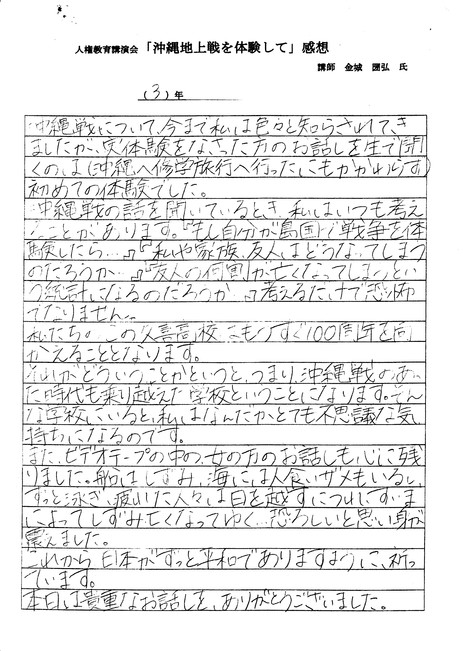 人権教育講演会 「沖縄地上戦を体験して」感想
講師 金城 氏
(3)年
沖縄戦について、今まで私は色々と知らされてき
ましたが、実体験をなさった方のお話しを生で聞
くのは(沖縄へ修学旅行へ行ったにもかかわらず)
初めての体験でした。
沖縄戦の話を聞いているとき、私はいつも考え
ることがあります。『もし自分が島国で戦争を体
験したら…』『私や家族、友人はどうなってしまう
のだろうか…』『友人の何割が亡くなってしまうとい
う統計になるのだろうか…』考えるだけで恐怖
でなりません…。
私たちの、この久喜高校はもうすぐ100周年を向
かえることとなります。
それがどういうことかというと、つまり、沖縄戦のあっ
た時代も乗り越えた学校ということになります。そん
な学校にいると、私はなんだかとても不思議な気
持ちになるのです。
また、ビデオテープの中の、女の方のお話しも心に残
りました。船はしずみ、海には人食いザメもいるし、
ずっと泳ぎ、疲れた人々は日を越すにつれ
によってしずみ亡くなってゆく…恐ろしいと思い身が
震えました。
これから日本がずっと平和でありますように、祈っ
ています。
本日は貴重なお話しを、ありがとうございました。